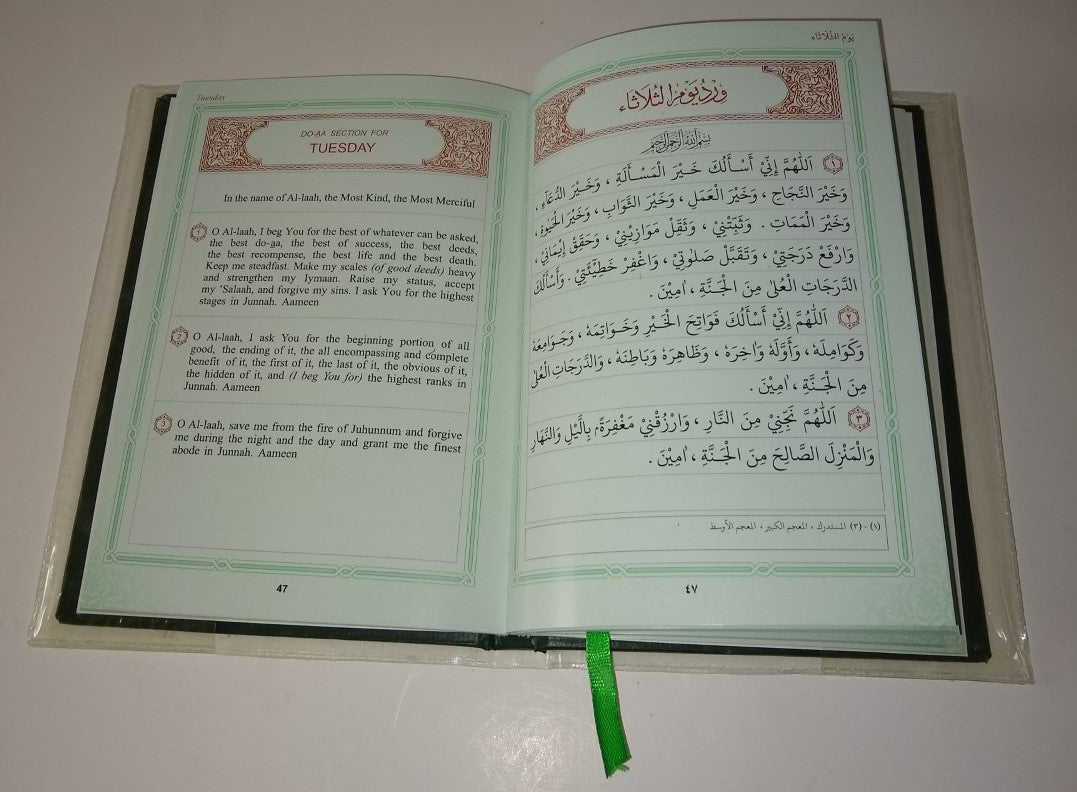 Tuesday
DO-AA SECTION FOR
TUESDAY
In the name of Al-laah, the Most Kind, the Most Merciful
1 O Al-laah, I beg You for the best of whatever can be asked,
the best do-aa, the best of success, the best deeds,
the best recompense, the best life and the best death.
Keep me steadfast. Make my scales (of good deeds) heavy
and strengthen my Iymaan. Raise my status, accept
my 'Salaah, and forgive my sins. I ask You for the highest
stages in Junnah. Aameen
2 O Al-laah, I ask You for the beginning portion of all
good, the ending of it, the all encompassing and complete
benefit of it, the first of it, the last of it, the obvious of it,
the hidden of it, and (I beg You for) the highest ranks in
Junnah. Aameen
3 O Al-laah, save me from the fire of Juhunnum and forgive
me during the night and the day and grant me the finest
abode in Junnah. Aameen
47
يَوْمُ الثُّلَاثَاءِ
وِرْدُ يَوْمِ الثُّلَاثَاء
بِسْمِ اللهِ الرَّحْمٰنِ الرَّحِيْمِ
١ اَللّٰهُمَّ إِنِّيْ أَسْأَلُكَ خَيْرَ الْمَسْأَلَةِ ، وَخَيْرَ الدُّعَآءِ ،
وَخَيْرَ النَّجَاحِ ، وَخَيْرَ الْعَمَلِ ، وَخَيْرَ الثَّوَابِ ، وَخَيْرَ الْحَيٰوةِ ،
وَخَيْرَ الْمَمَاتِ . وَثَبِّتْنِيْ ، وَثَقِّلْ مَوَازِيْنِيْ ، وَحَقِّقْ إِيْمَانِيْ ،
وَارْفَعْ دَرَجَتِيْ ، وَتَقَبَّلْ صَلٰوتِيْ ، وَاغْفِرْ خَطِيْئَتِيْ . وَأَسْأَلُكَ
الدَّرَجَاتِ الْعُلٰى مِنَ الْجَنَّةِ ، اٰمِيْنَ .
٢ اَللّٰهُمَّ إِنِّيْ أَسْأَلُكَ فَوَاتِحَ الْخَيْرِ وَخَوَاتِمَهٗ ، وَجَوَامِعَهٗ
وَكَوَامِلَهٗ ، وَأَوَّلَهٗ وَاٰخِرَهٗ ، وَظَاهِرَهٗ وَبَاطِنَهٗ ، وَالدَّرَجَاتِ الْعُلٰى
مِنَ الْجَنَّةِ ، اٰمِيْنَ .
٣ اَللّٰهُمَّ نَجِّنِيْ مِنَ النَّارِ ، وَارْزُقْنِيْ مَغْفِرَةً، بِالَّيْلِ وَالنَّهَارِ
وَالْمَنْزِلَ الصَّالِحَ مِنَ الْجَنَّةِ ، اٰمِيْنَ .
(١) - (٣) المستدرك ، المعجم الكبير ، المعجم الأوسط
٤٧